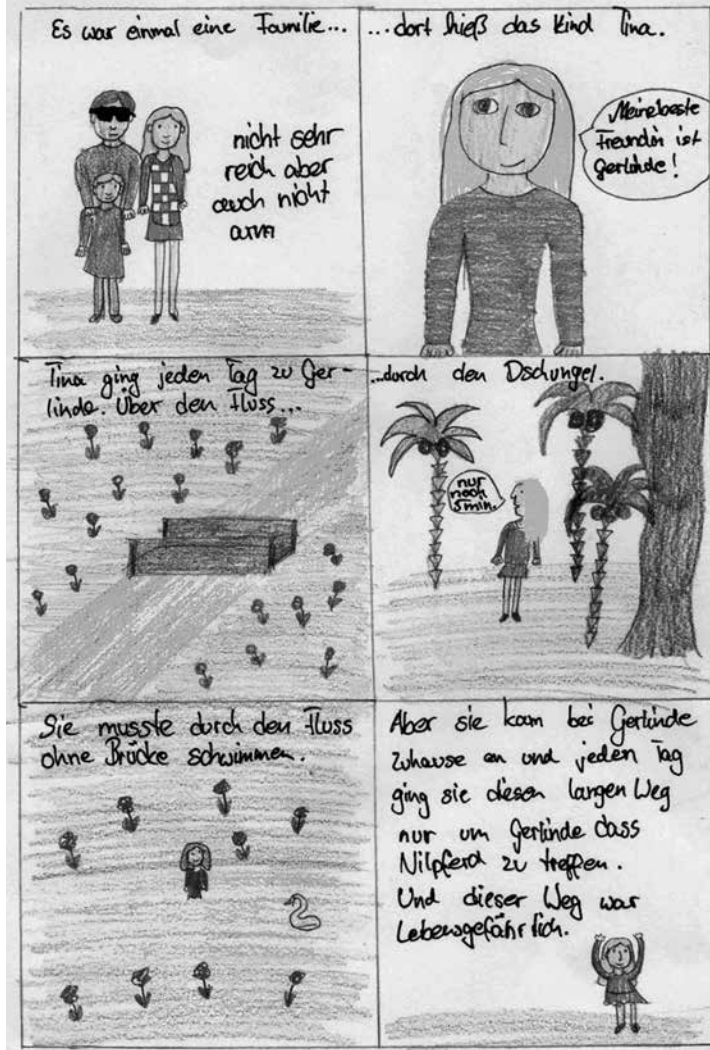 Es war einmal eine Familie...
nicht sehr
reich aber
auch nicht
arm
...dort hieß das Kind Tina.
Meine beste
Freundin ist
Gerlinde!
Tina ging jeden Tag zu Ger-
linde. Über den Fluss...
...durch den Dschungel.
nur
noch
5 min.
Sie musste durch den Fluss
ohne Brücke schwimmen.
Aber sie kam bei Gerlinde
Zuhause an und jeden Tag
ging sie diesen langen Weg
nur um Gerlinde dass
Nilpferd zu treffen.
Und dieser Weg war
Lebensgefährlich.